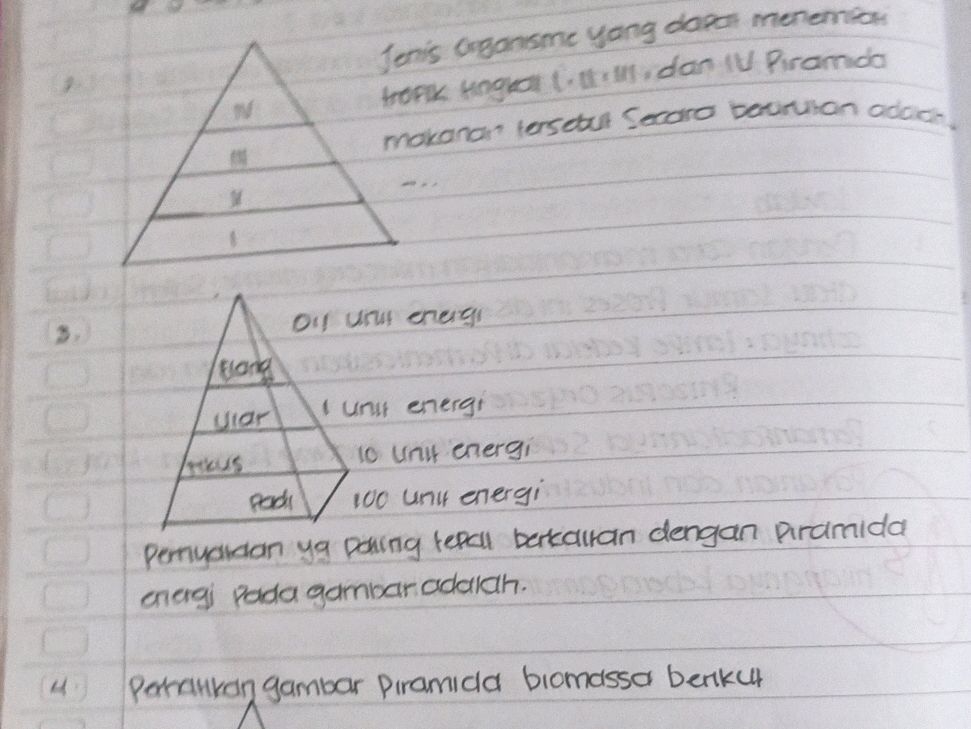 Jenis organisme yang dapat menempati
trofik tingkat I, II, III, dan IV Piramida
makanan tersebut secara berurutan adalah
....
IV
III
II
I
3.
0,1 unit energi
Elang
Ular
1 unit energi
tikus
10 unit energi
Padi
100 unit energi
Pernyataan yg paling tepat berkaitan dengan piramida
energi pada gambar adalah.
4.
Perhatikan gambar piramida biomassa berikut